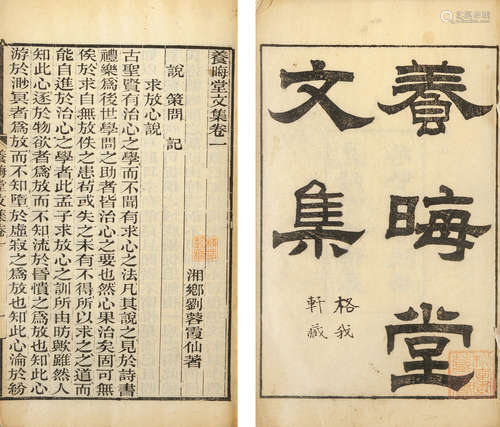 養晦堂
文集
格我
軒藏
養晦堂文集卷一
湘鄉劉蓉霞仙著
說 策問 記
求放心說
古聖賢有治心之學而不聞有求心之法凡其說之見於詩書
禮樂為後世學問之助者皆治心之要也然心果治矣固可無
俟於求自無放佚之患苟或失之未有不得所以求之之道而
能自進於治心之學者此孟子求放心之訓所由昉歟雖然人
知此心逐於物欲者為放而不知流於昏憒之為放也知此心
游於渺冥者為放而不知墮於虛寂之為放也知此心淪於紛
養晦堂文集卷一